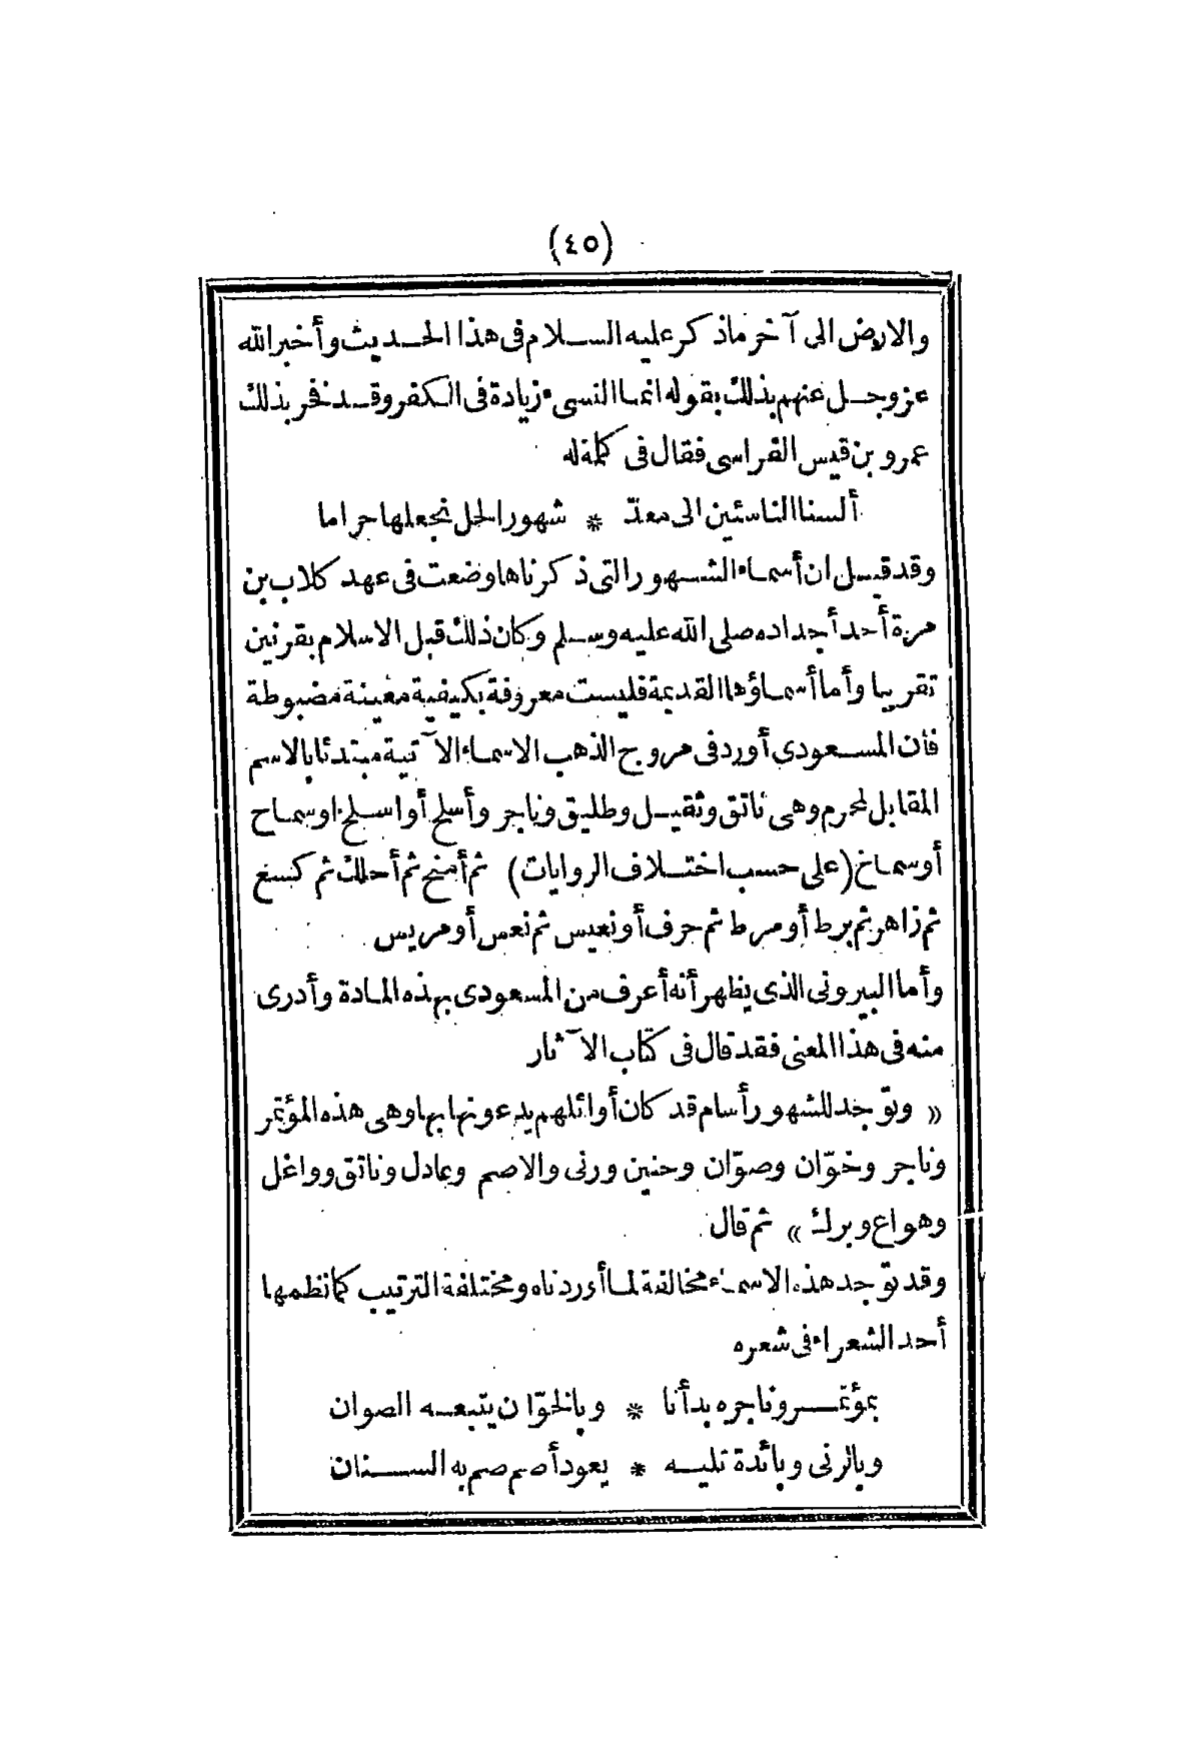 (٤٥)
والارض الى آخر ماذكر عليه السلام فى هذا الحديث وأخبر الله
عز وجل عنهم بذلك بقوله انما النسىء زيادة فى الكفر وقد نفر بذلك
عمرو بن قيس الفراسى فقال فى كلمة له
ألسنا الناسئين الى معدّ * شهور الحل نجعلها حراما
وقد قيل ان أسماء الشهور التى ذكرناها وضعت فى عهد كلاب بن
مرة أحد أجداده صلى الله عليه وسلم وكان ذلك قبل الاسلام بقرنين
تقريبا وأما أسماؤها القديمة فليست معروفة بكيفية معينة مضبوطة
فان المسعودى أورد فى مروج الذهب الاسماء الآتية مبتدئا بالاسم
المقابل لمحرم وهى ناتق وثقيل وطليق وناجر وأسلح أو اسلخ او سماح
أو سماخ (على حسب اختلاف الروايات) ثم أمنح ثم أحلك ثم كسع
ثم زاهر ثم برط أو مرط ثم حرف أو نعيس ثم نعس أو مريس
وأما البيرونى الذى يظهر أنه أعرف من المسعودى بهذه المادة وأدرى
منه فى هذا المعنى فقد قال فى كتاب الآثار
« وتوجد للشهور أسام قد كان أوائلهم يدعونها بها وهى هذه المؤتمر
وناجر وخوّان وصوّان وحنين ورنى والاصم وعادل وناتق وواغل
وهواع وبرك » ثم قال
وقد توجد هذه الاسماء مخالفة لما أوردناه ومختلفة الترتيب كما نظمها
أحد الشعراء فى شعره
بمؤتمر وناجره بدأنا * وبالخوّان يتبعه الصوان
وبالرنى وبائدة تليه * يعود أصم صم به السنان